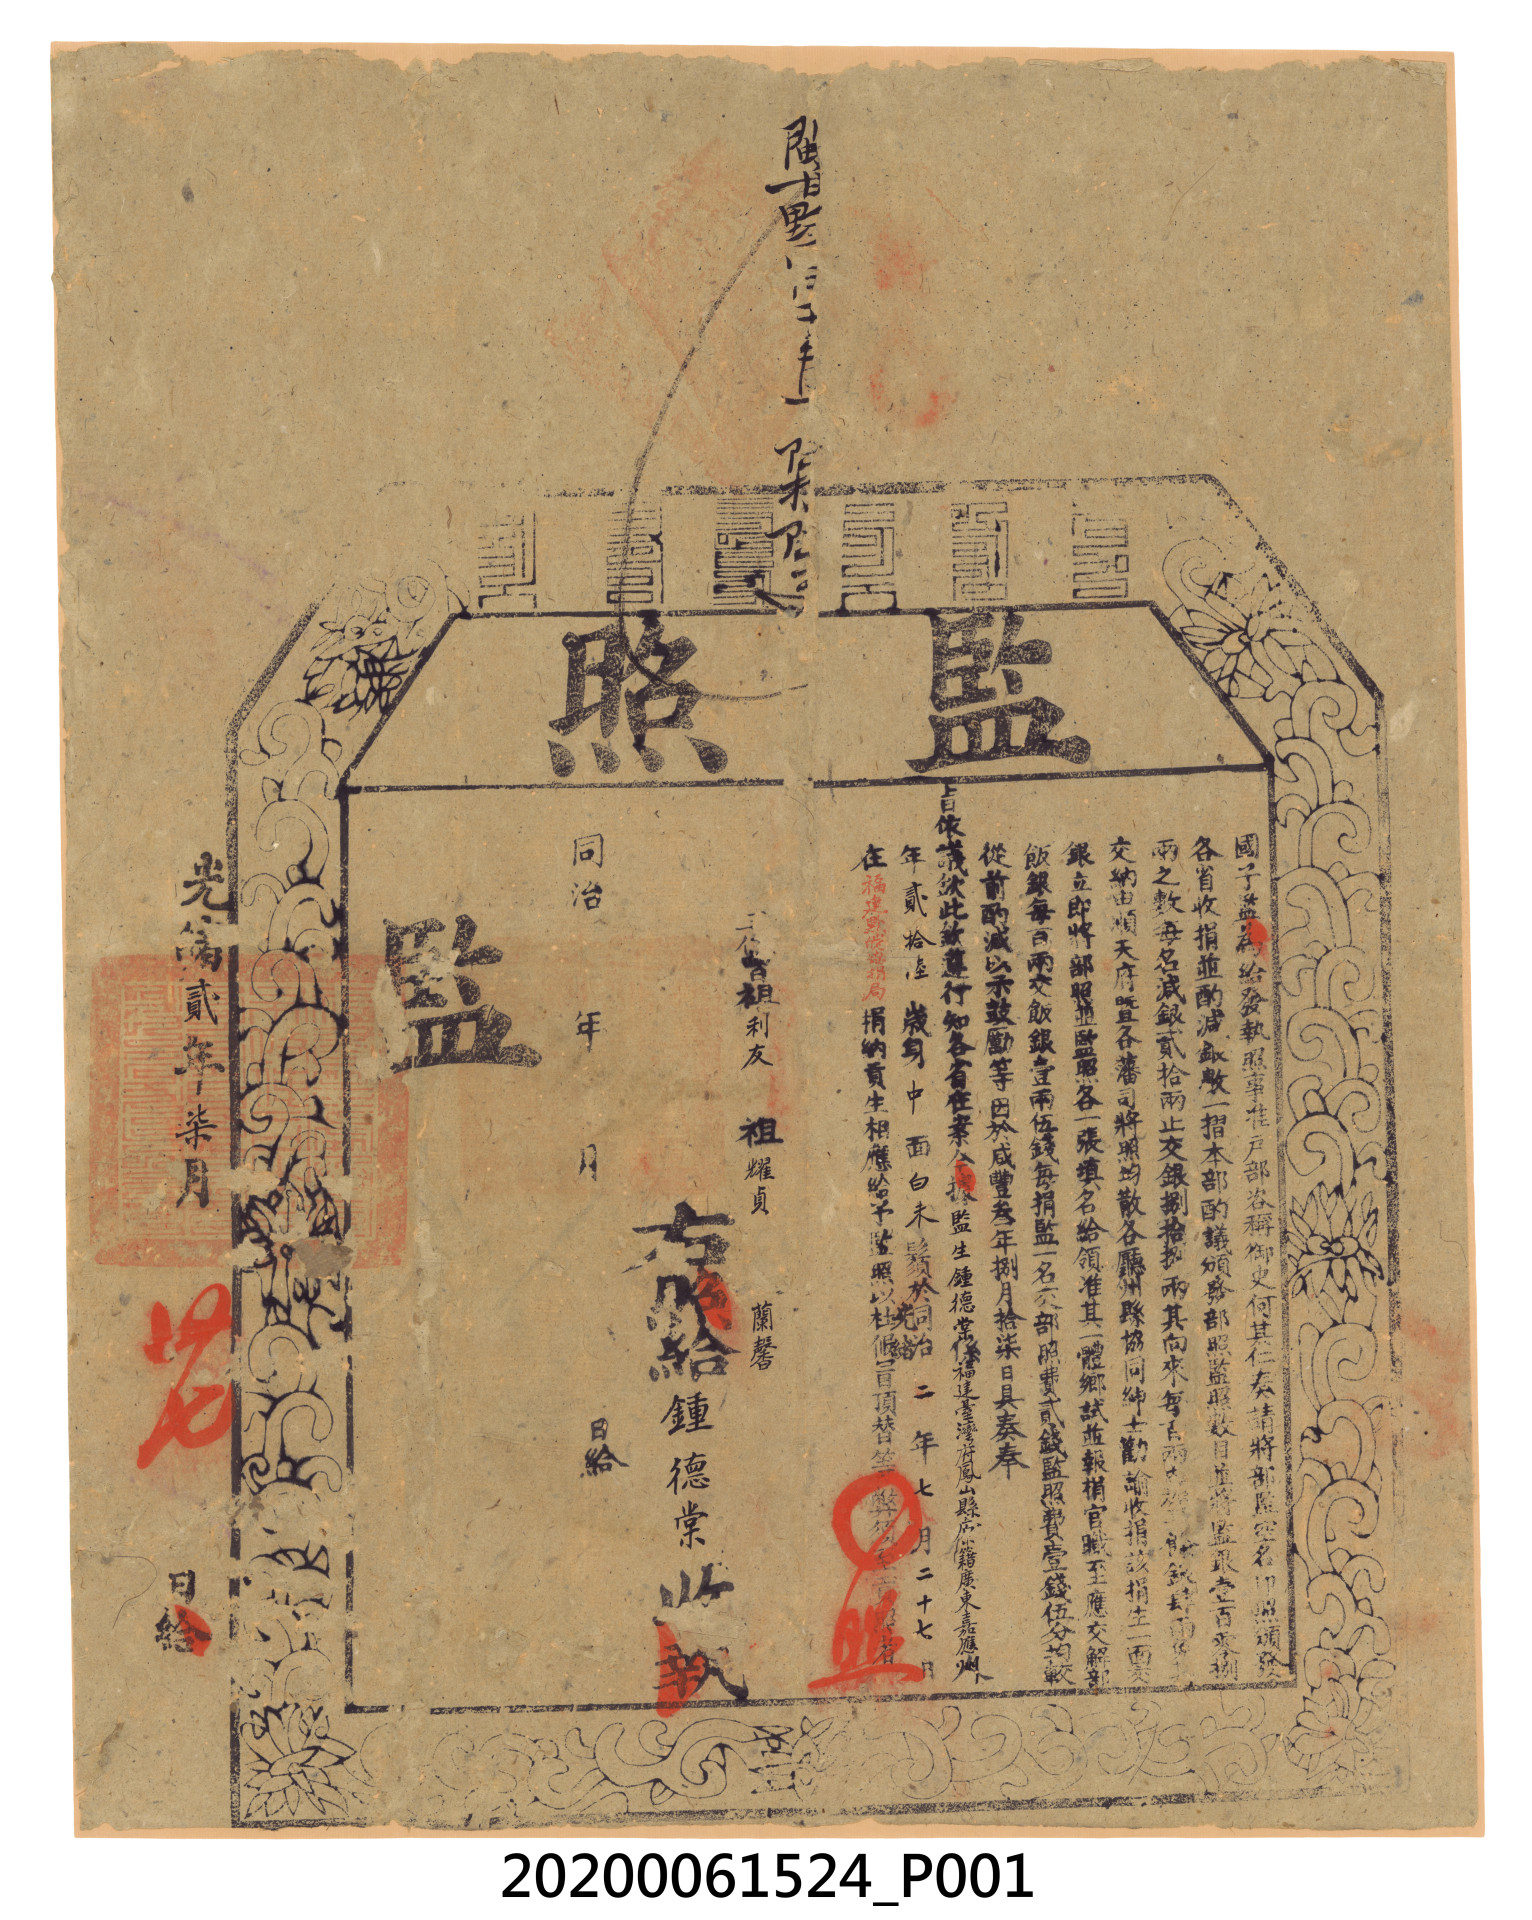 監照
國子監為給發執照事准戶部咨稱御史何其仁奏請將部監空名印照頒發
各省收捐並酌減銀數一摺本部酌議頒發部照監照數目並將監銀壹百零捌
兩之數每名減銀貳拾兩止交銀捌拾捌兩其向來每百兩
交納由順天府暨各藩司將照均散各廳州縣協同紳士勸諭收捐該捐生一面交
銀立即將部照並監照各一張填名給領准其一體鄉試並報捐官職至應交解部
飯銀每百兩交飯銀壹兩伍錢每捐監一名交部照費貳錢監照費壹錢伍分均較
從前酌減以示鼓勵等因於咸豐叁年捌月拾柒日具奏奉
旨依議欽此欽遵行知各省在案今據監生鍾德棠係福建臺灣府鳳山縣原籍廣東嘉應州人
年貳拾陸歲身中面白未鬚於同治光緒二年七月二十七日
在福建 捐局捐納貢生相應給予監照以杜假冒頂替等弊須至監照者
三代曾祖利友 祖耀貞 蘭馨
右照給鍾德棠收執
同治 年 月 日給
監
光緒貳年柒月 日給
照
20200061524_P001